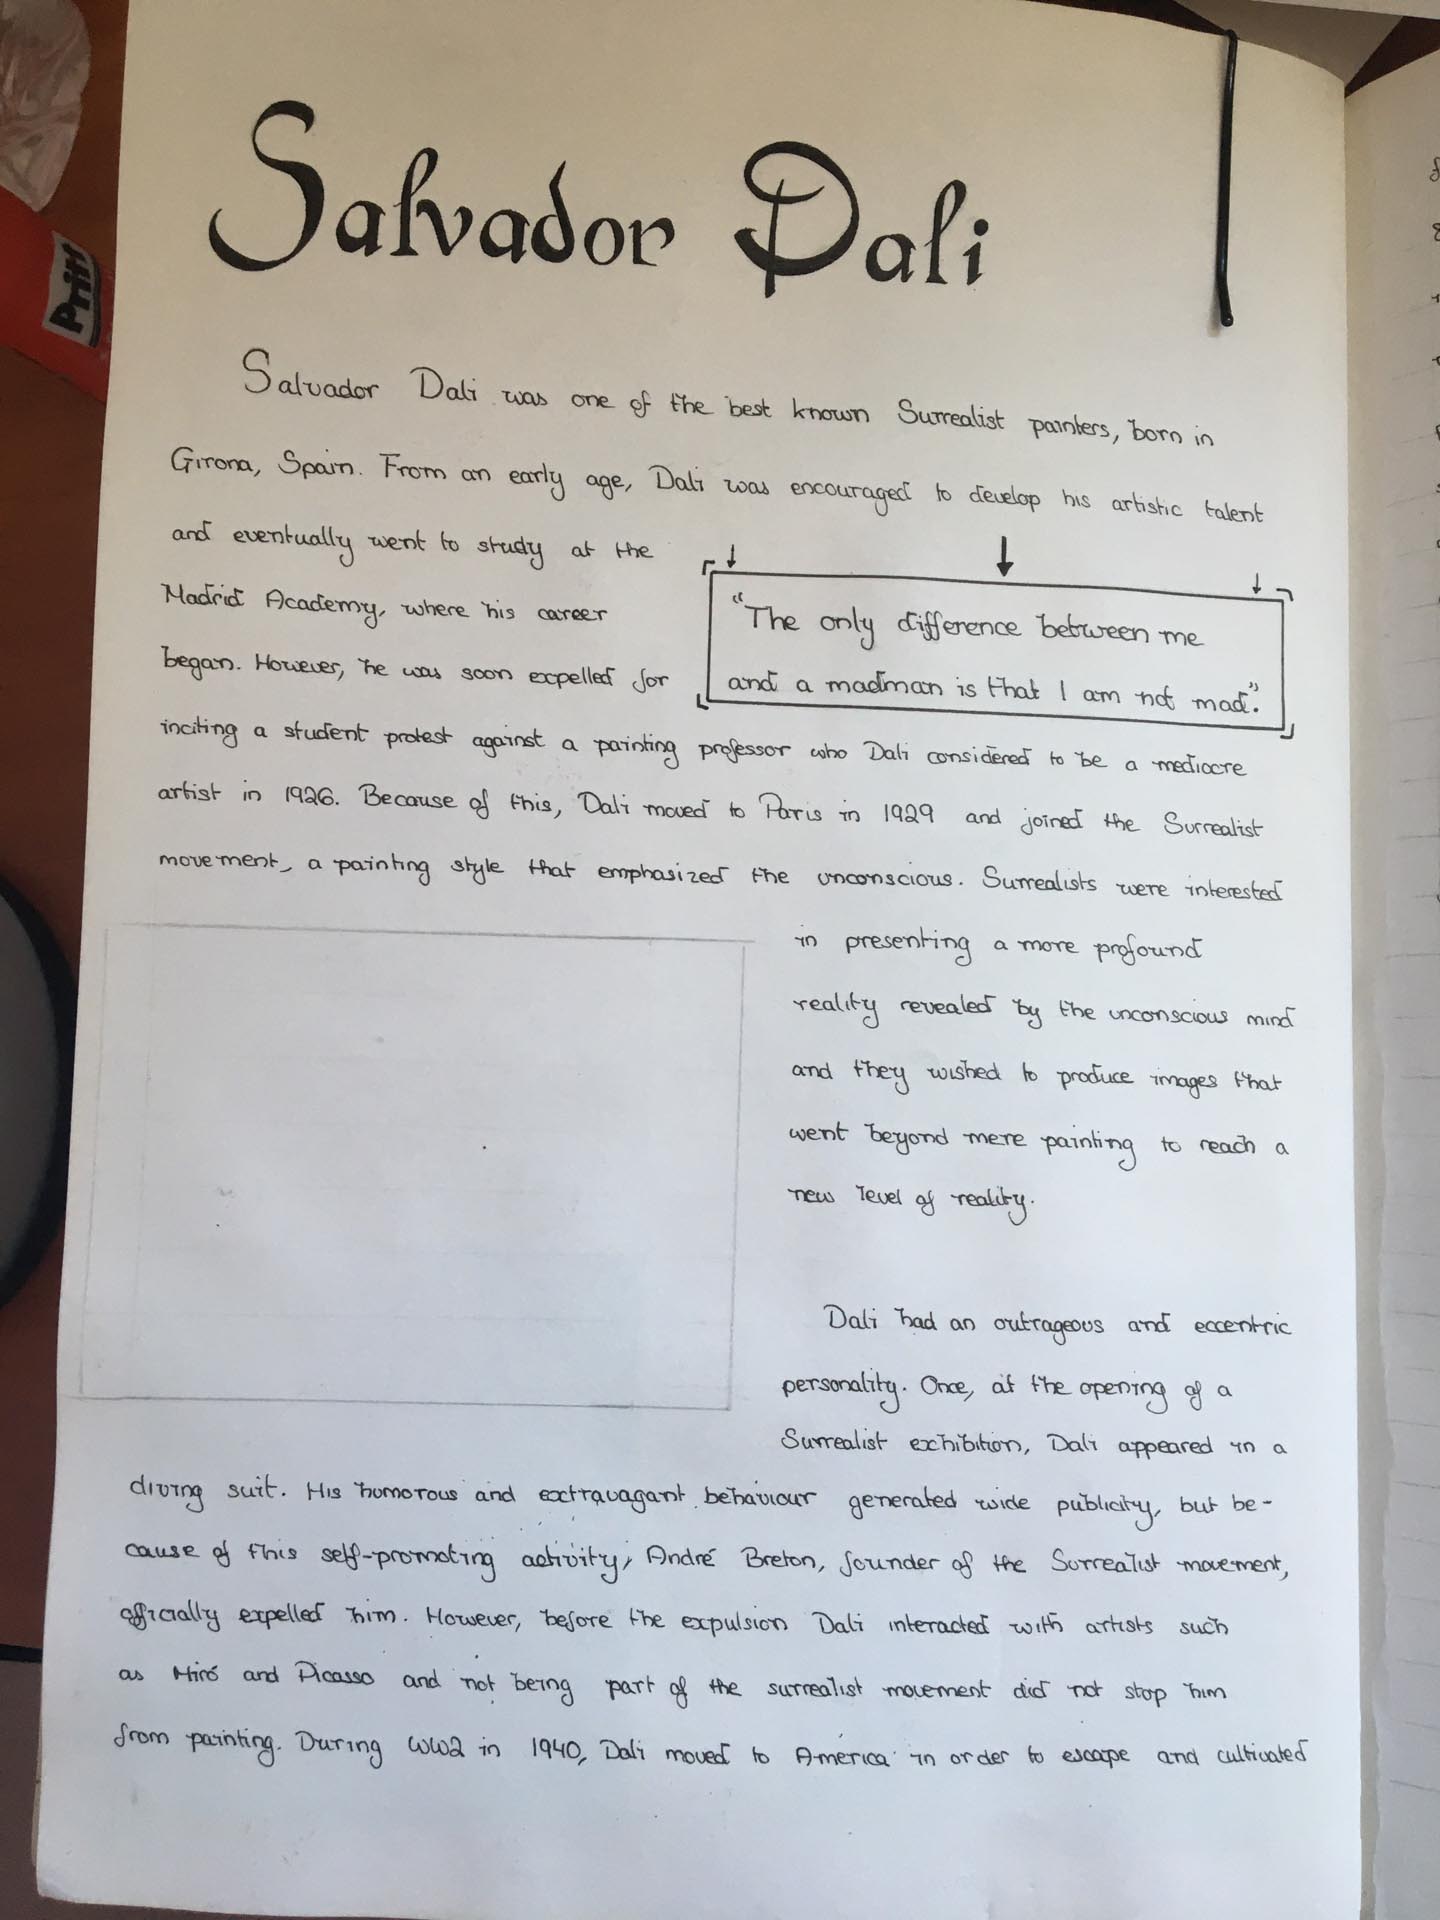 Salvador Dali
Salvador Dali was one of the best known Surrealist painters, born in
Girona, Spain. From an early age, Dali was encouraged to develop his artistic talent
and eventually went to study at the
Madrid Academy, where his career
began. However, he was soon expelled for
"The only difference between me
and a madman is that I am not mad".
inciting a student protest against a painting professor who Dali considered to be a mediocre
artist in 1926. Because of this, Dali moved to Paris in 1929 and joined the Surrealist
movement, a painting style that emphasized the unconscious. Surrealists were interested
in presenting a more profound
reality revealed by the unconscious mind
and they wished to produce images that
went beyond mere painting to reach a
new level of reality.
Dali had an outrageous and eccentric
personality. Once, at the opening of a
Surrealist exhibition, Dali appeared in a
diving suit. His humorous and extravagant behaviour generated wide publicity, but be-
cause of this self-promoting activity, André Breton, founder of the Surrealist movement,
officially expelled him. However, before the expulsion Dali interacted with artists such
as Miró and Picasso and not being part of the surrealist movement did not stop him
from painting. During WW2 in 1940, Dali moved to America in order to escape and cultivated
Pritt